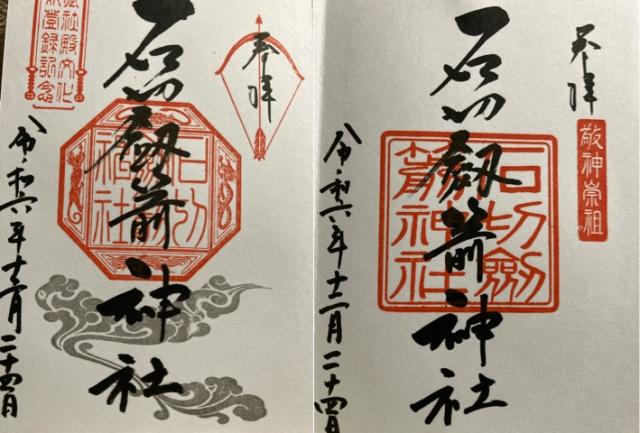 奉拝
石切劔箭神社
石切
社殿文化
登録記念
令和六年十二月二十四日
奉拝
敬神崇祖
石切劔箭神社
石切劍
箭神社
令和六年十二月二十四日